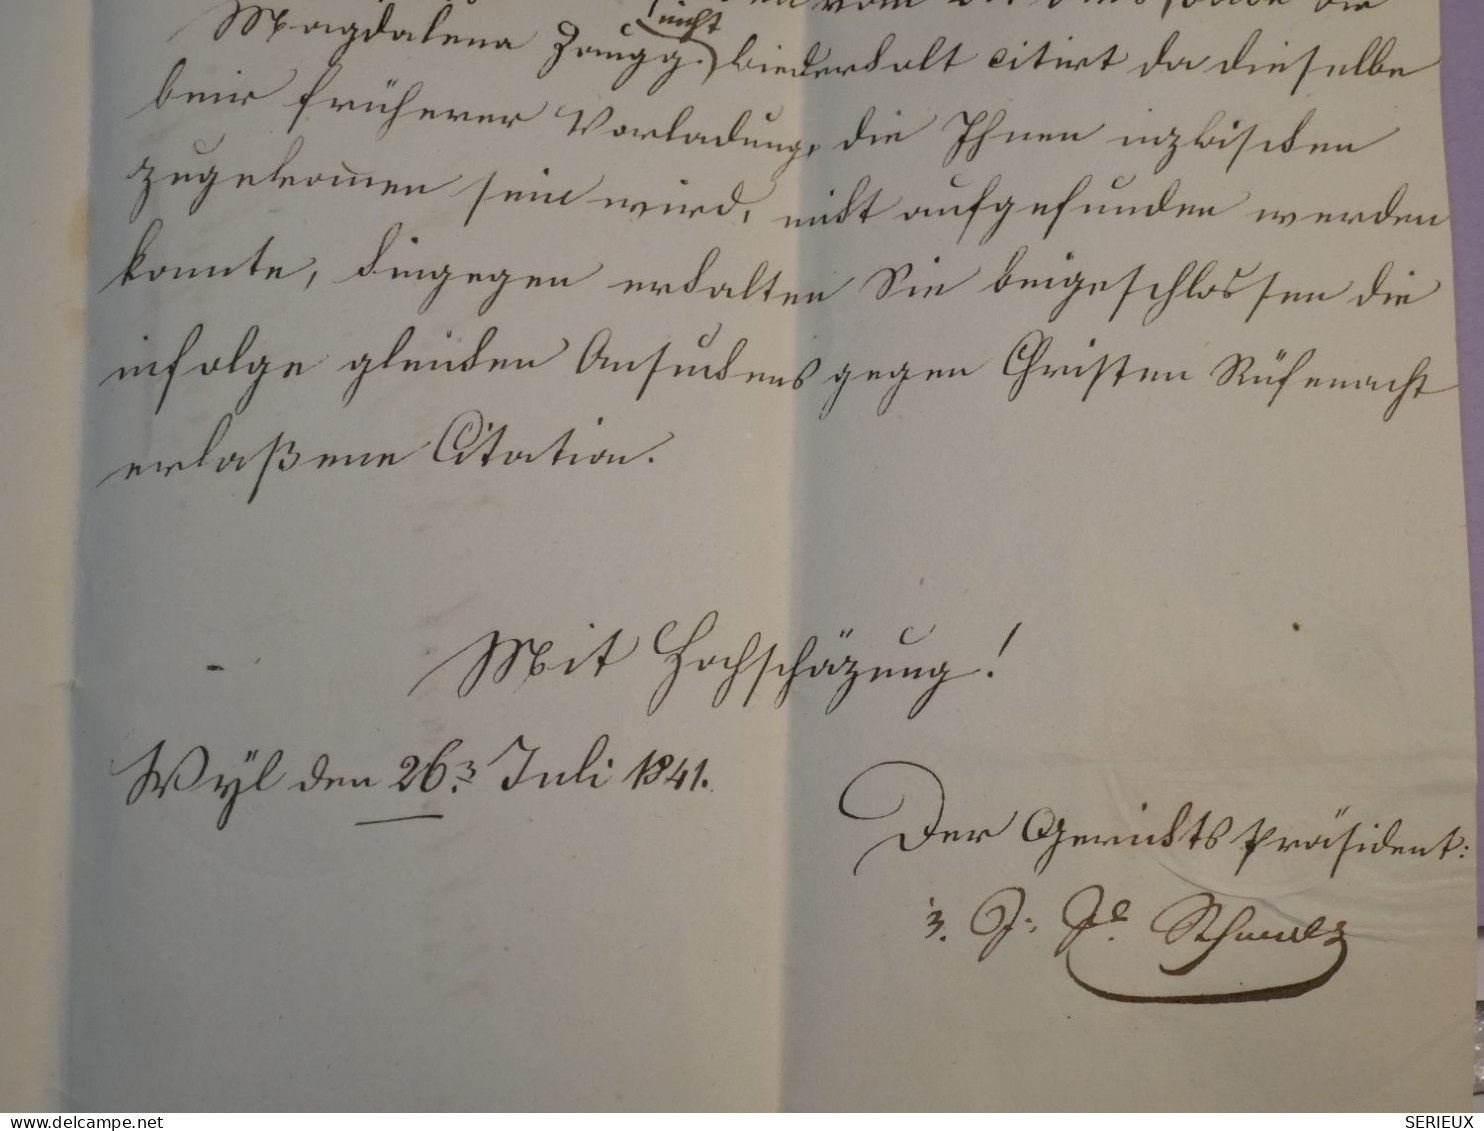 vom
nicht
Magdalena Zaugg wiederholt citirt da dieselbe
beir früherer Vorladung, die Ihnen inzwischen
zugekom̅en sein wird, nicht aufgefunden werden
konnte, hingegen erhalten Sie beigeschlossen die
infolge gleichen Ansuchens gegen Christen Rüfenacht
erlaßene Citation.
Mit Hochschäzung!
Wÿl den 26. Juli 1841.
Der Gerichtspräsident:
DELCAMPE.NET
SERIEUX